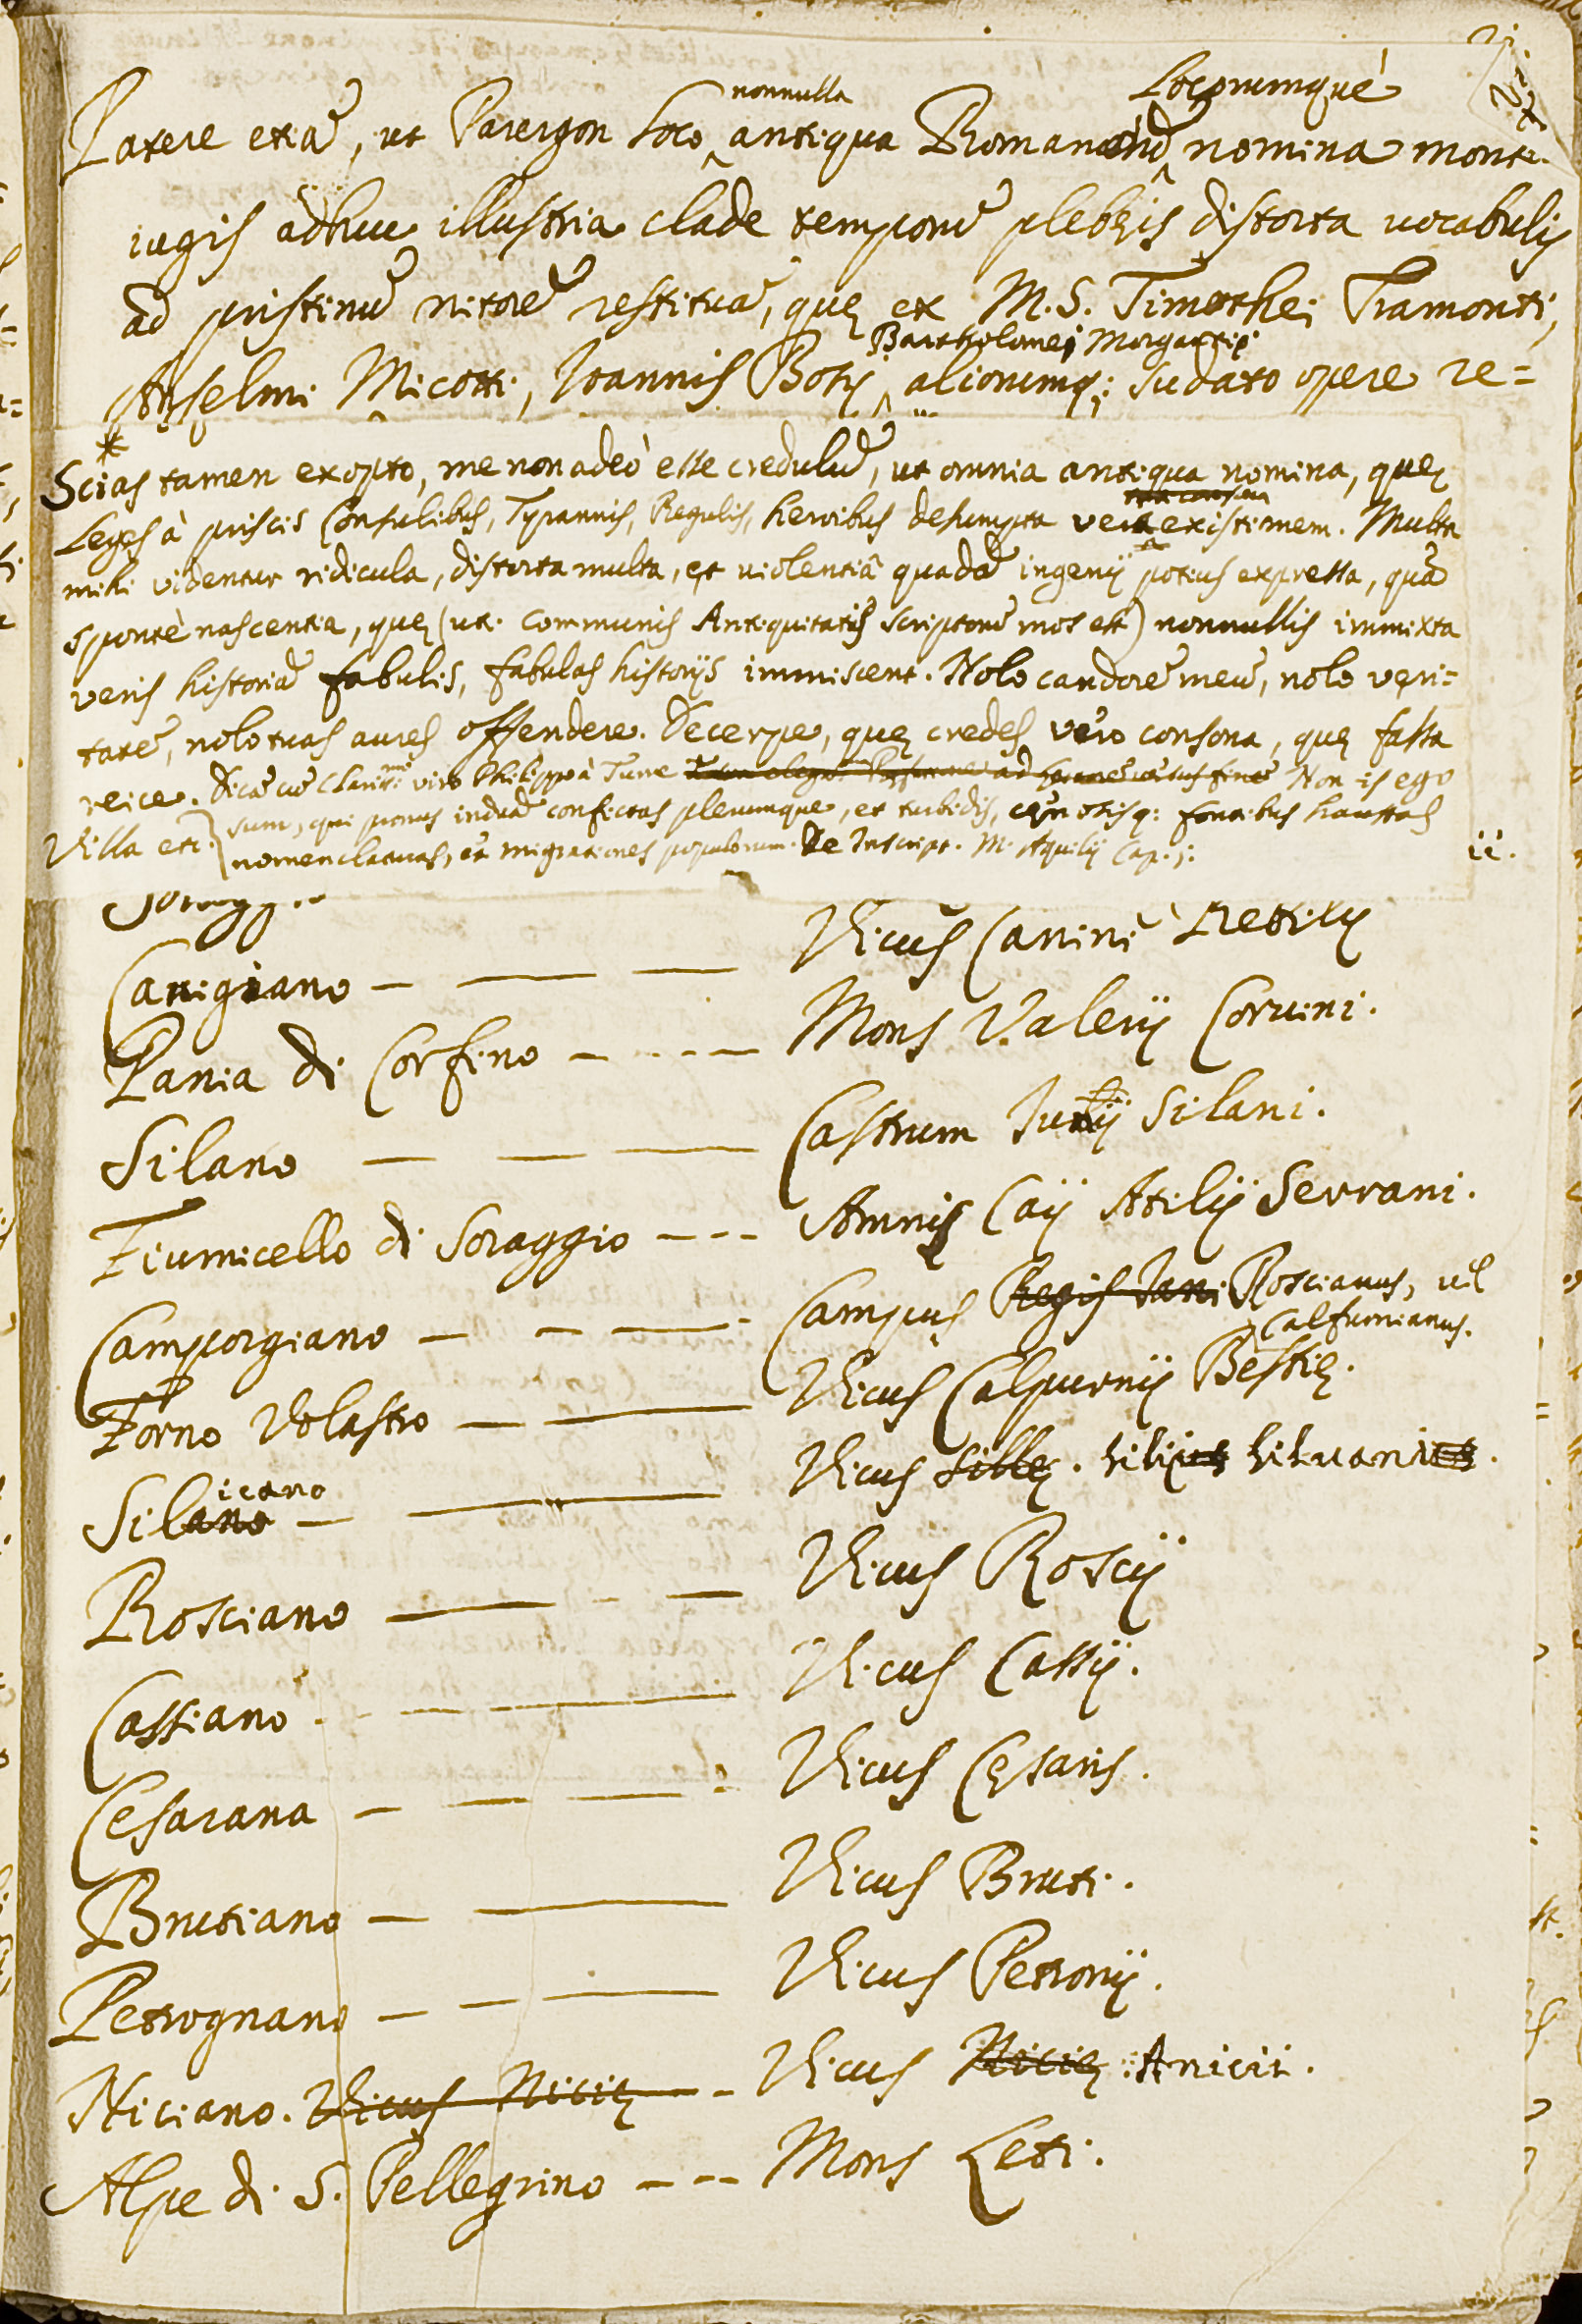 nonnulla Locorumquè
Patere etiā, ut Parergon loco antiqua Romanorū nomina monti-
iugis adhuc illustria clade temporū plebęis distorta vocabulis
ad pristinū nitorē restituā, quę ex M.S. Timothei Tramonti,
Bartholomei Morgantis
Anselmi Micotti, Ioannis Botij alionumq; sudato opere re=
*
Scias tamen exopto, me non adeò esse credulū, ut omnia antiqua nomina, quę
Leges à priscis Consulibus, Tyrannis, Regulis, heroibus desumpta vera existimem. Multa
mihi videntur ridicula, distorta multa, et violentiâ quadā ingenij potius expressa, quā
spontè nascentia, quę (ut communis Antiquitatis scriptorū mos est) nonnullis immixta
veris historiā fabulis, fabulas historijs immiscent. Nolo candorē meū, nolo veri=
tatē, nolo tuas aures offendere. Decerpe, quę credes vero consona, quę falsa
reice. Dicā cū Clariss.mo viro Philippo à Turre Non is ego
sum, qui pronus induā confictas plerumque, et turbidis, cęnosisq: fontibus haustas
Villa etc. nomenclaturas, et migrationes populorum. De Inscript. M. Aquilij Cap. j:
ii.
Canigiano - — — Vicus Caninī Rebilij
Pania di Corfino - - - - — Mons Valerij Corvini.
Silano — — — Castrum Iunij Silani.
Fiumicello di Soraggio - - - Amnis Caij Atilij Serrani.
Camporgiano — - — - Campus Regis Jani Roscianus, vel
Calfurnianus.
Forno Volastro — - — Vicus Calpurnij Bestię.
icano
Silano — - — Vicus Sillę. Silij Silvani.
Rosciano — - — Vicus Roscij
Cassiano - - — — Vicus Cassij.
Cesarana — — — : Vicus Cęsaris.
Brutiano — — Vicus Bruti.
Petrognano - — — Vicus Petronij.
Niciano. Vicus Nicię - - Vicus Nicię Anicii.
Alpe di S. Pellegrino - - - Mons Leti.